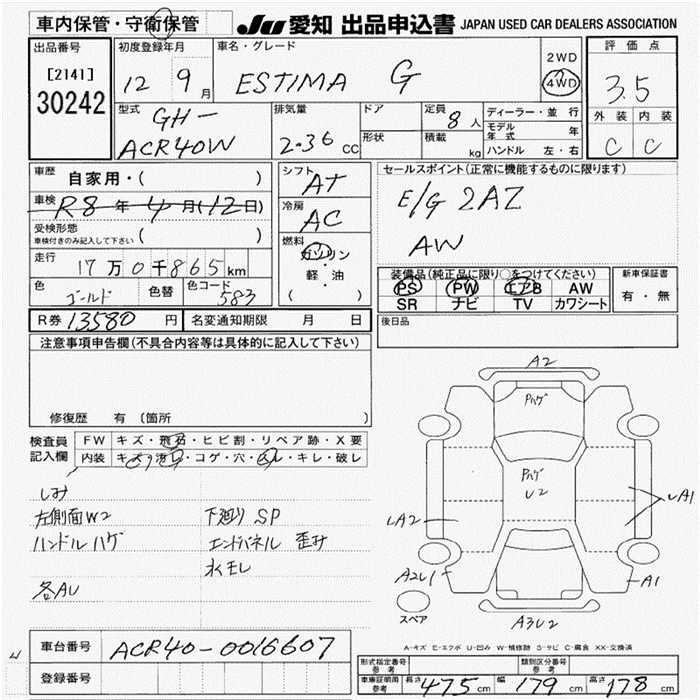 車内保管・守衛保管
JU 愛知 出品申込書 JAPAN USED CAR DEALERS ASSOCIATION
出品番号
[2141]
30242
初度登録年月
12 9月
車名・グレード
ESTIMA G
2WD
4WD
評価点
3.5
外装 内装
C C
型式
GH-
ACR40W
排気量
2.36 CC
ドア
形状
定員 8人
積載 kg
ディーラー・並行
モデル年式 年
ハンドル 左・右
車歴 自家用・( )
車検 R8年4月(12日)
受検形態
車検付きのみ記入して下さい ( )
走行 17万0千865km
色 ゴールド 色替 色コード 583
シフト AT
冷房 AC
燃料
ガソリン
・
軽・油
( )
セールスポイント(正常に機能するものに限ります)
E/G 2AZ
AW
装備品(純正品に限り○をつけてください)
PS PW エアB AW
SR ナビ TV カワシート
新車保証書
有・無
R券 13580円 名変通知期限 月 日
後日品
注意事項申告欄(不具合内容等は具体的に記入して下さい)
修復歴 有 (箇所 )
検査員記入欄
FW キズ・飛石・ヒビ割・リペア跡・X要
内装 キズ・汚れ・コゲ・穴・スレ・キレ・破レ
しみ
左側面W2 下廻り SP
ハンドルハゲ エンドパネル 歪み
水モレ
各AU
A2
Pハゲ
Pハゲ
U2
LA2
LA1
A2U1
A1
スペア
A3U2
A-キズ E-エクボ U-凹み W-補修跡 S-サビ C-腐食 XX-交換済
車台番号 ACR40-0016607
登録番号
形式指定番号 参考
類別区分番号 参考
車庫証明用 参考 長さ 475cm 幅 179cm 高さ 178cm